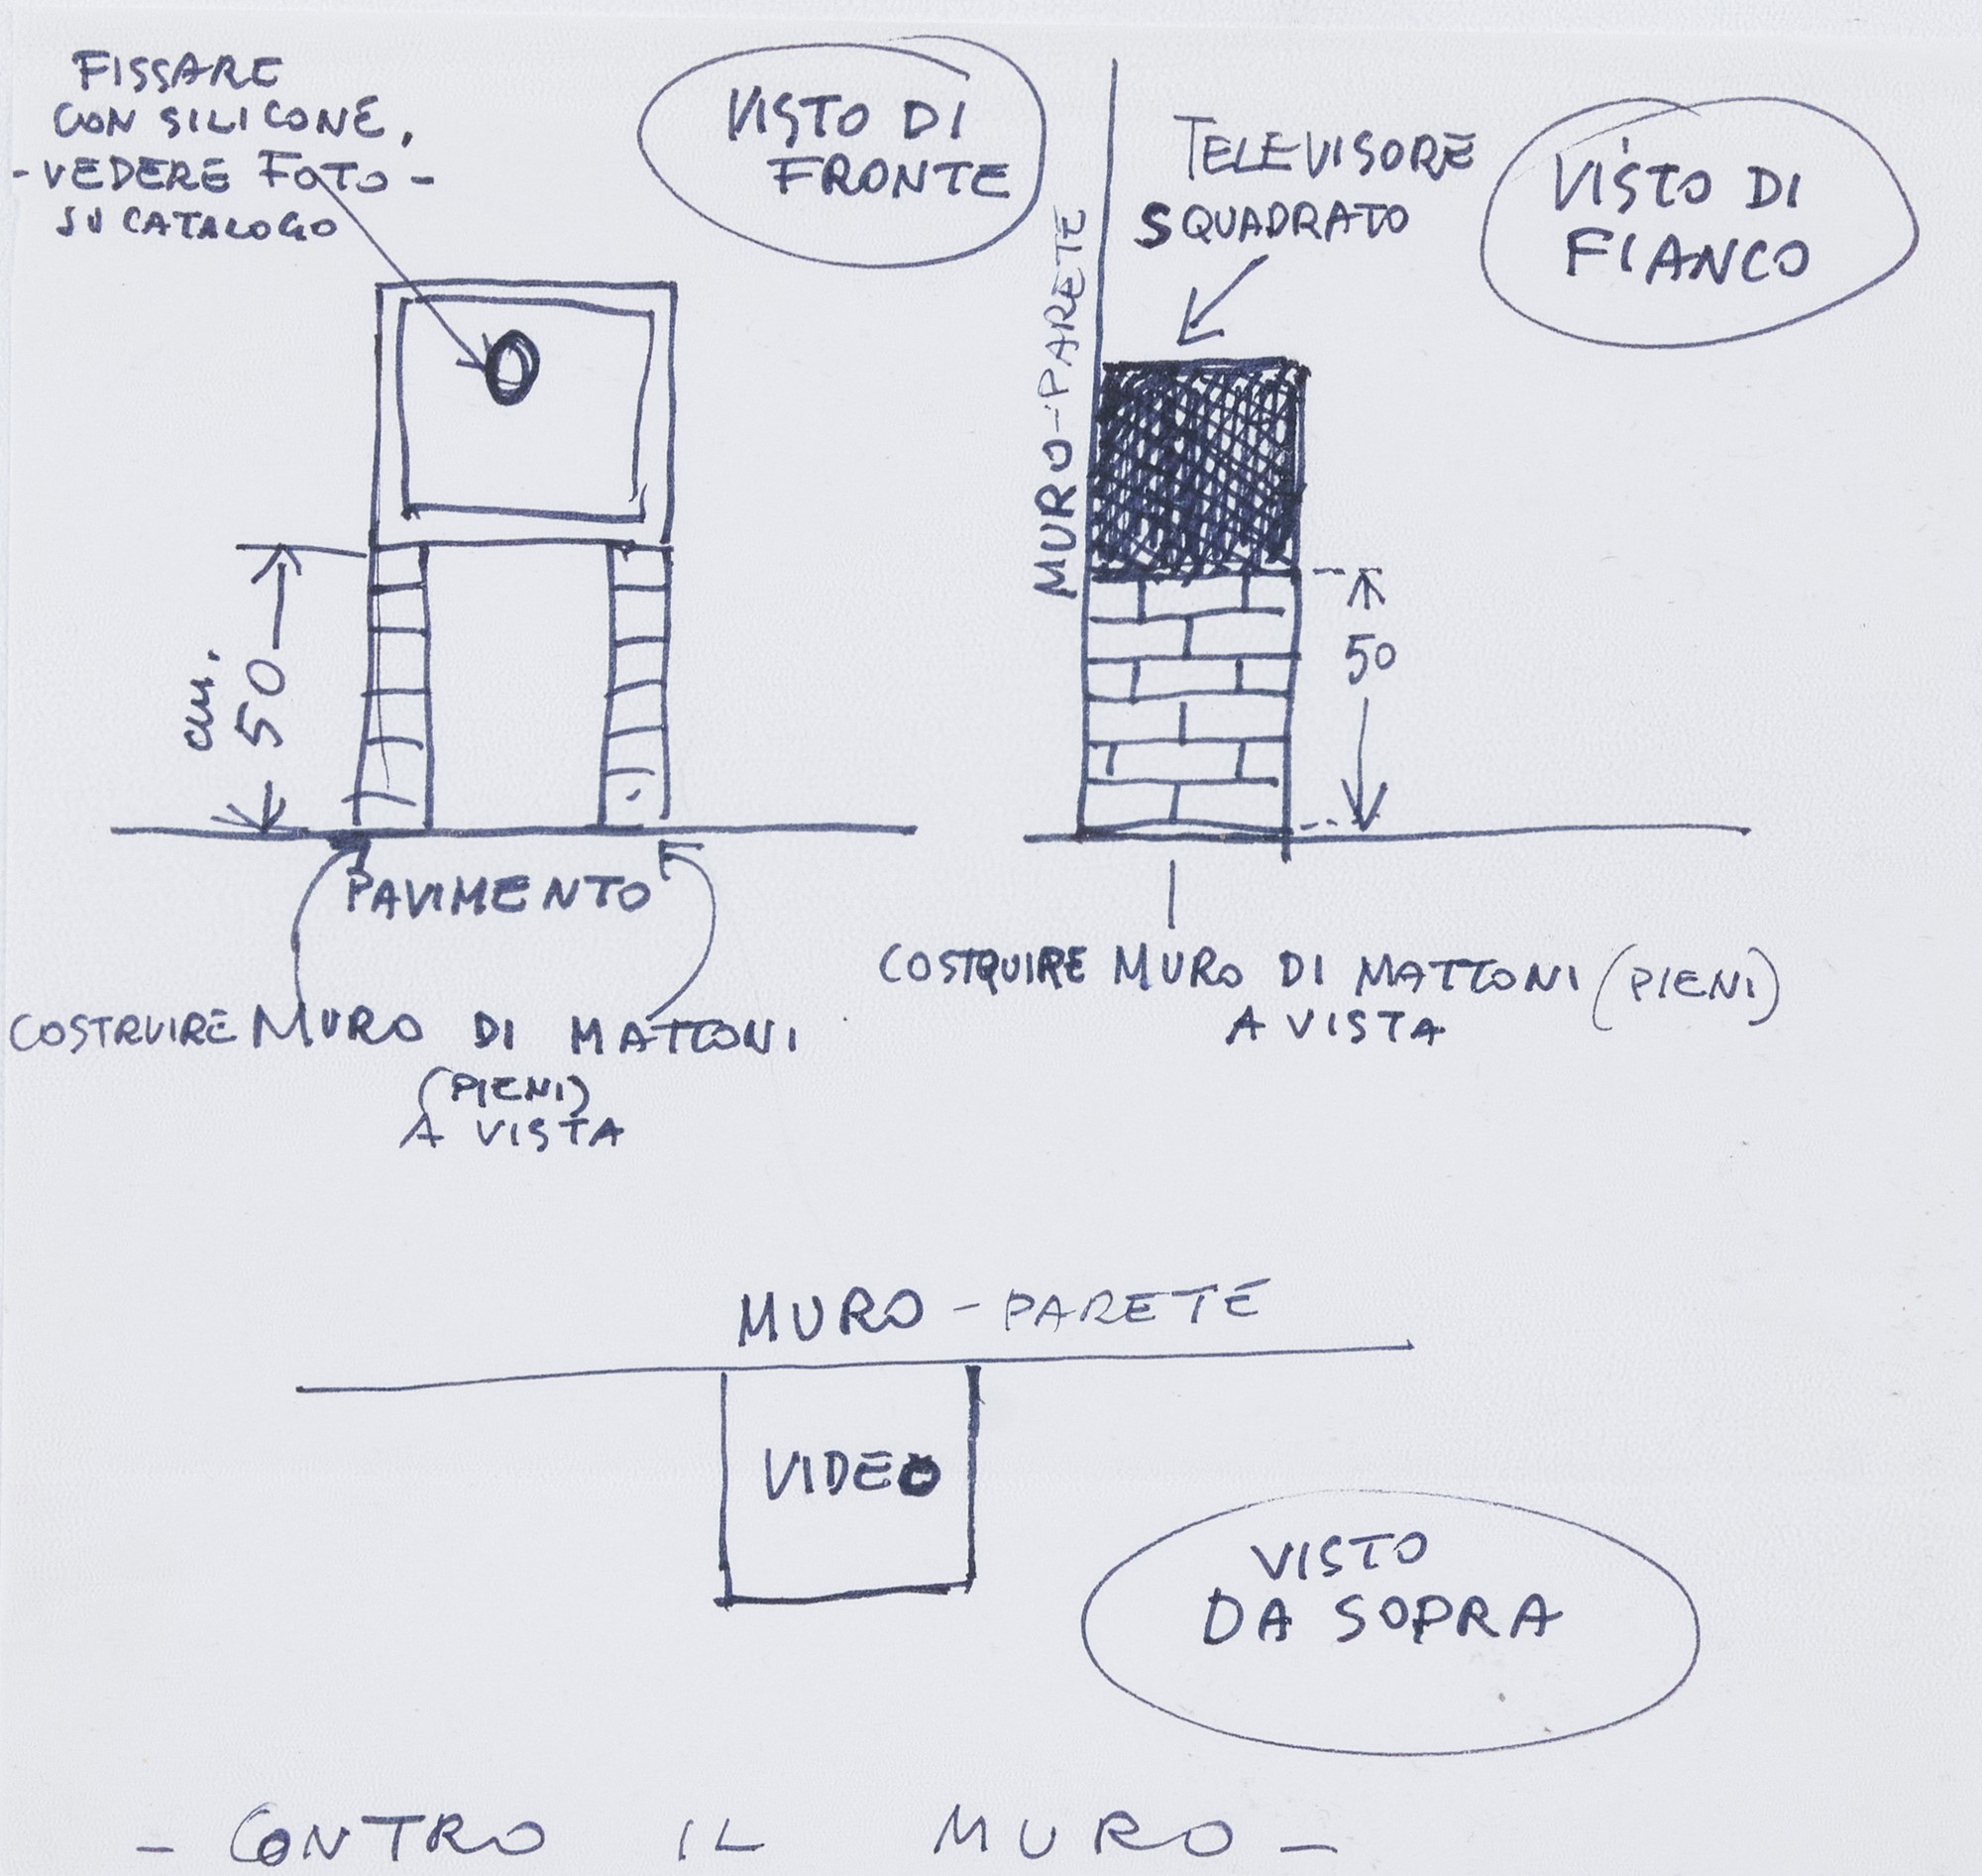 FISSARE
CON SILICONE,
- VEDERE FOTO -
SU CATALOGO
VISTO DI
FRONTE
TELEVISORE
SQUADRATO
VISTO DI
FIANCO
MURO-PARETE
cm.
50
50
PAVIMENTO
COSTRUIRE MURO DI MATTONI
(PIENI)
A VISTA
COSTQUIRE MURO DI MATTONI (PIENI)
A VISTA
MURO - PARETE
VIDEO
VISTO
DA SOPRA
- CONTRO IL MURO -